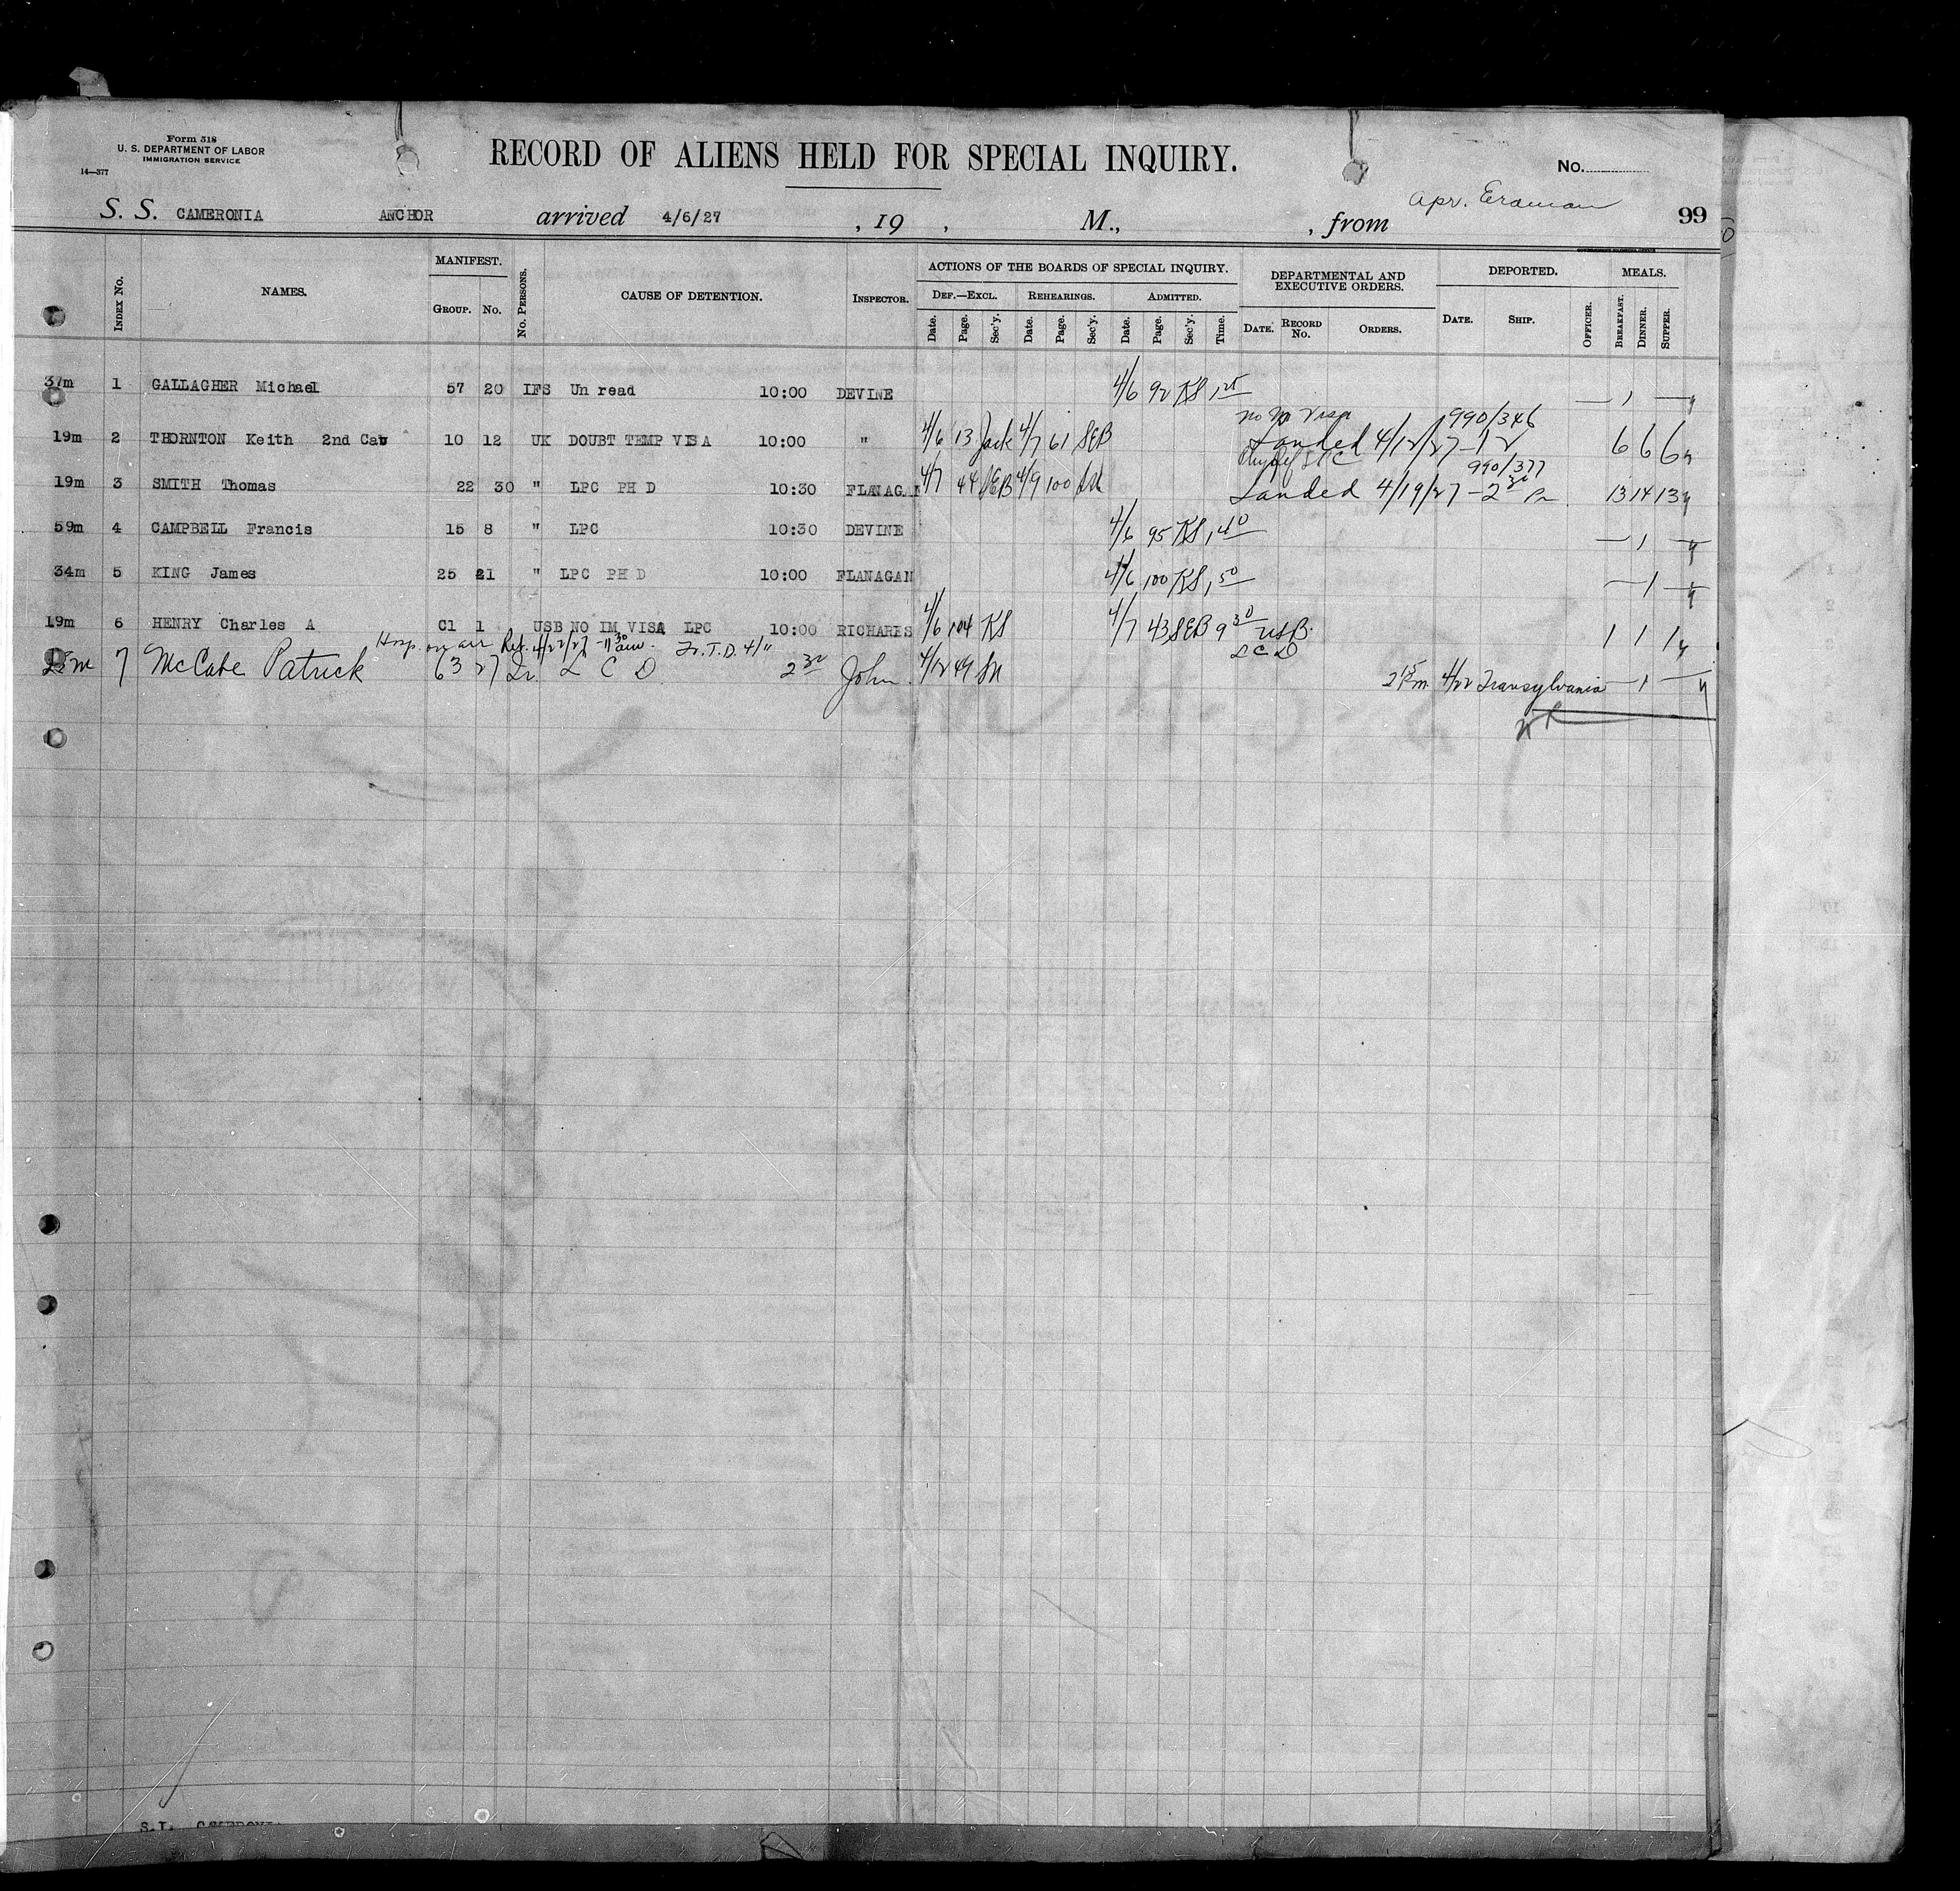 Form 518
U. S. DEPARTMENT OF LABOR
IMMIGRATION SERVICE
14—377
RECORD OF ALIENS HELD FOR SPECIAL INQUIRY.
No.
S. S. CAMERONIA ANCHOR arrived 4/6/27 , 19 , M., , from Apr. 99
INDEX No. NAMES. MANIFEST. GROUP. No. No. PERSONS. CAUSE OF DETENTION. INSPECTOR. ACTIONS OF THE BOARDS OF SPECIAL INQUIRY. DEPARTMENTAL AND EXECUTIVE ORDERS. DEPORTED. MEALS.
DEF.—EXCL. REHEARINGS. ADMITTED.
Date. Page. Sec'y. Date. Page. Sec'y. Date. Page. Sec'y. Time. DATE. RECORD No. ORDERS. DATE. SHIP. OFFICER. BREAKFAST. DINNER. SUPPER.
37m 1 GALLAGHER Michael 57 20 IFS Un read 10:00 DEVINE 4/6 92 KS 1 25 — 1 —
no Visa 990/346
19m 2 THORNTON Keith 2nd Cab 10 12 UK DOUBT TEMP VISA 10:00 " 4/6 13 Jack 4/7 61 SEB Landed 4/12/27-12 6 6 6
LPC 990/377
19m 3 SMITH Thomas 22 30 " LPC PH D 10:30 FLANAGAN 4/7 44 SEB 4/9 100 Landed 4/19/27-2 30 13 14 13
59m 4 CAMPBELL Francis 15 8 " LPC 10:30 DEVINE 4/6 95 KS 1 40 — 1 —
34m 5 KING James 25 21 " LPC PH D 10:00 FLANAGAN 4/6 100 KS 1 50 — 1 —
19m 6 HENRY Charles A C1 1 USB NO IM VISA LPC 10:00 RICHARDS 4/6 104 KS 4/7 43 SEB 9 30 USB. 1 1 1
Hosp. on arr Rel. 4/22/27 - 11 30 am. T.D. 4/11 LCD
25m 7 McCabe Patrick 63 27 Ir. L C D 2 30 John. 4/12 49 2 15 Pm. 4/22 Transylvania — 1 —
S.I. CAMERONIA